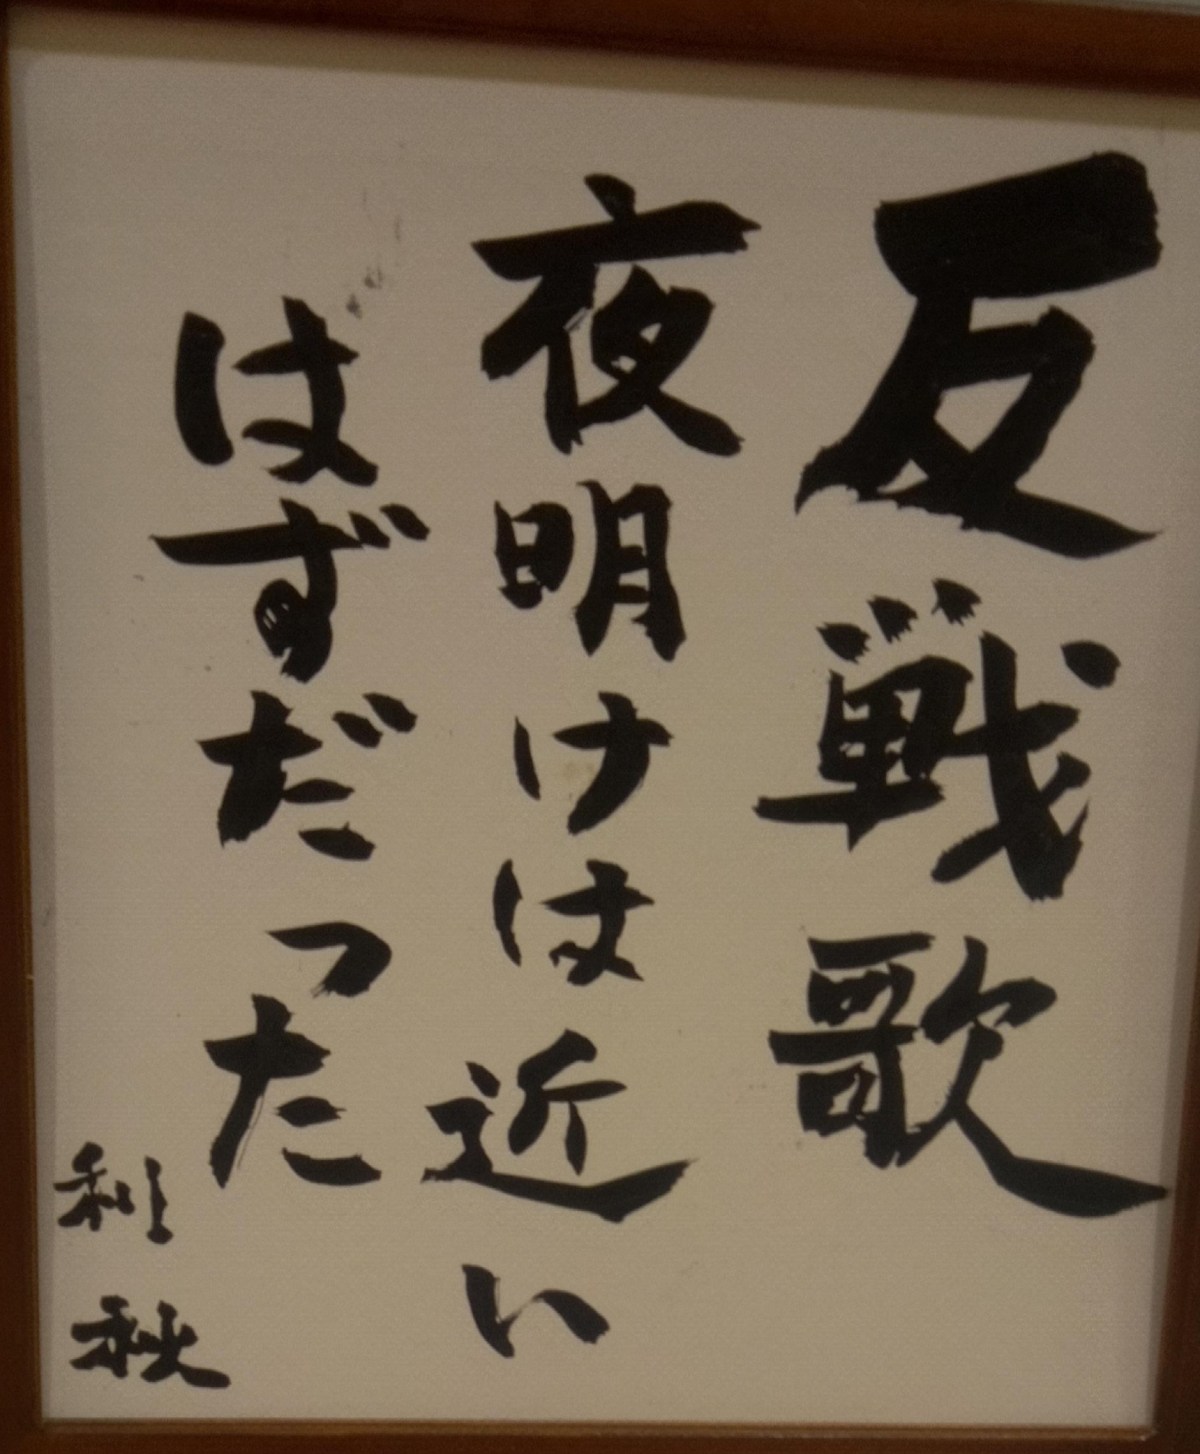 反戦歌
夜明けは近い
はずだった
利秋